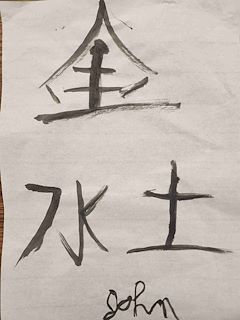 金
水土
John